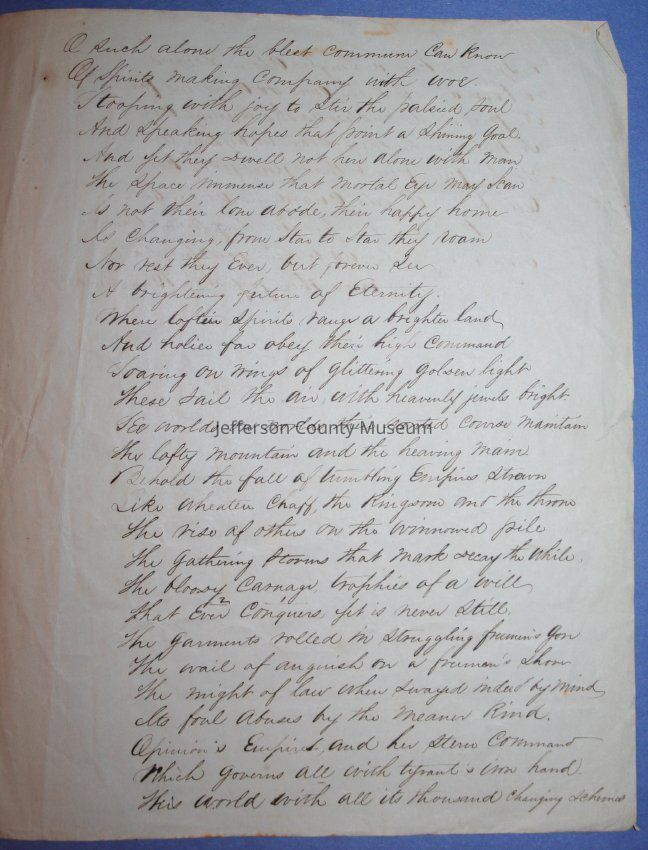 O Such alone the blest commune Can Know
Of Spirits making Company with woe.
Stooping with joy to Stir the palsied soul
And Speaking hopes that point a Shining Goal.
And yet they dwell not here alone with Man
The Space immense that mortal Eye May Scan
Is not their lone abode, their happy home
As Changing, from Star to Star they roam
Nor rest they Ever, but forever See
A brightening picture of Eternity.
Where loftier Spirits range a brighter land
And holier far obey their high Command
Soaring on wings of glittering golden light
These sail the air with heavenly jewels bright
See worlds on worlds their wonted course maintain
Jefferson County Museum
The lofty mountain and the heaving Main
Behold the fall of tumbling Empires Strewn
Like wheaten Chaff, the Kingdom and the throne
The rise of others on the winnowed pile
The Gathering Storms that mark decay the while.
The bloody Carnage, trophies of a will
That Ever Conquers yet is never Still.
The Garments rolled in Struggling freemen's Gore
The wail of anguish on a freemen's Shore
The might of law when swayed indeed by Mind
Its foul Abuses by the Meaner Kind.
Opinion's Empire, and her Stern Command
Which Governs all with tyrant's iron hand.
This world with all its thousand Changing Schemes